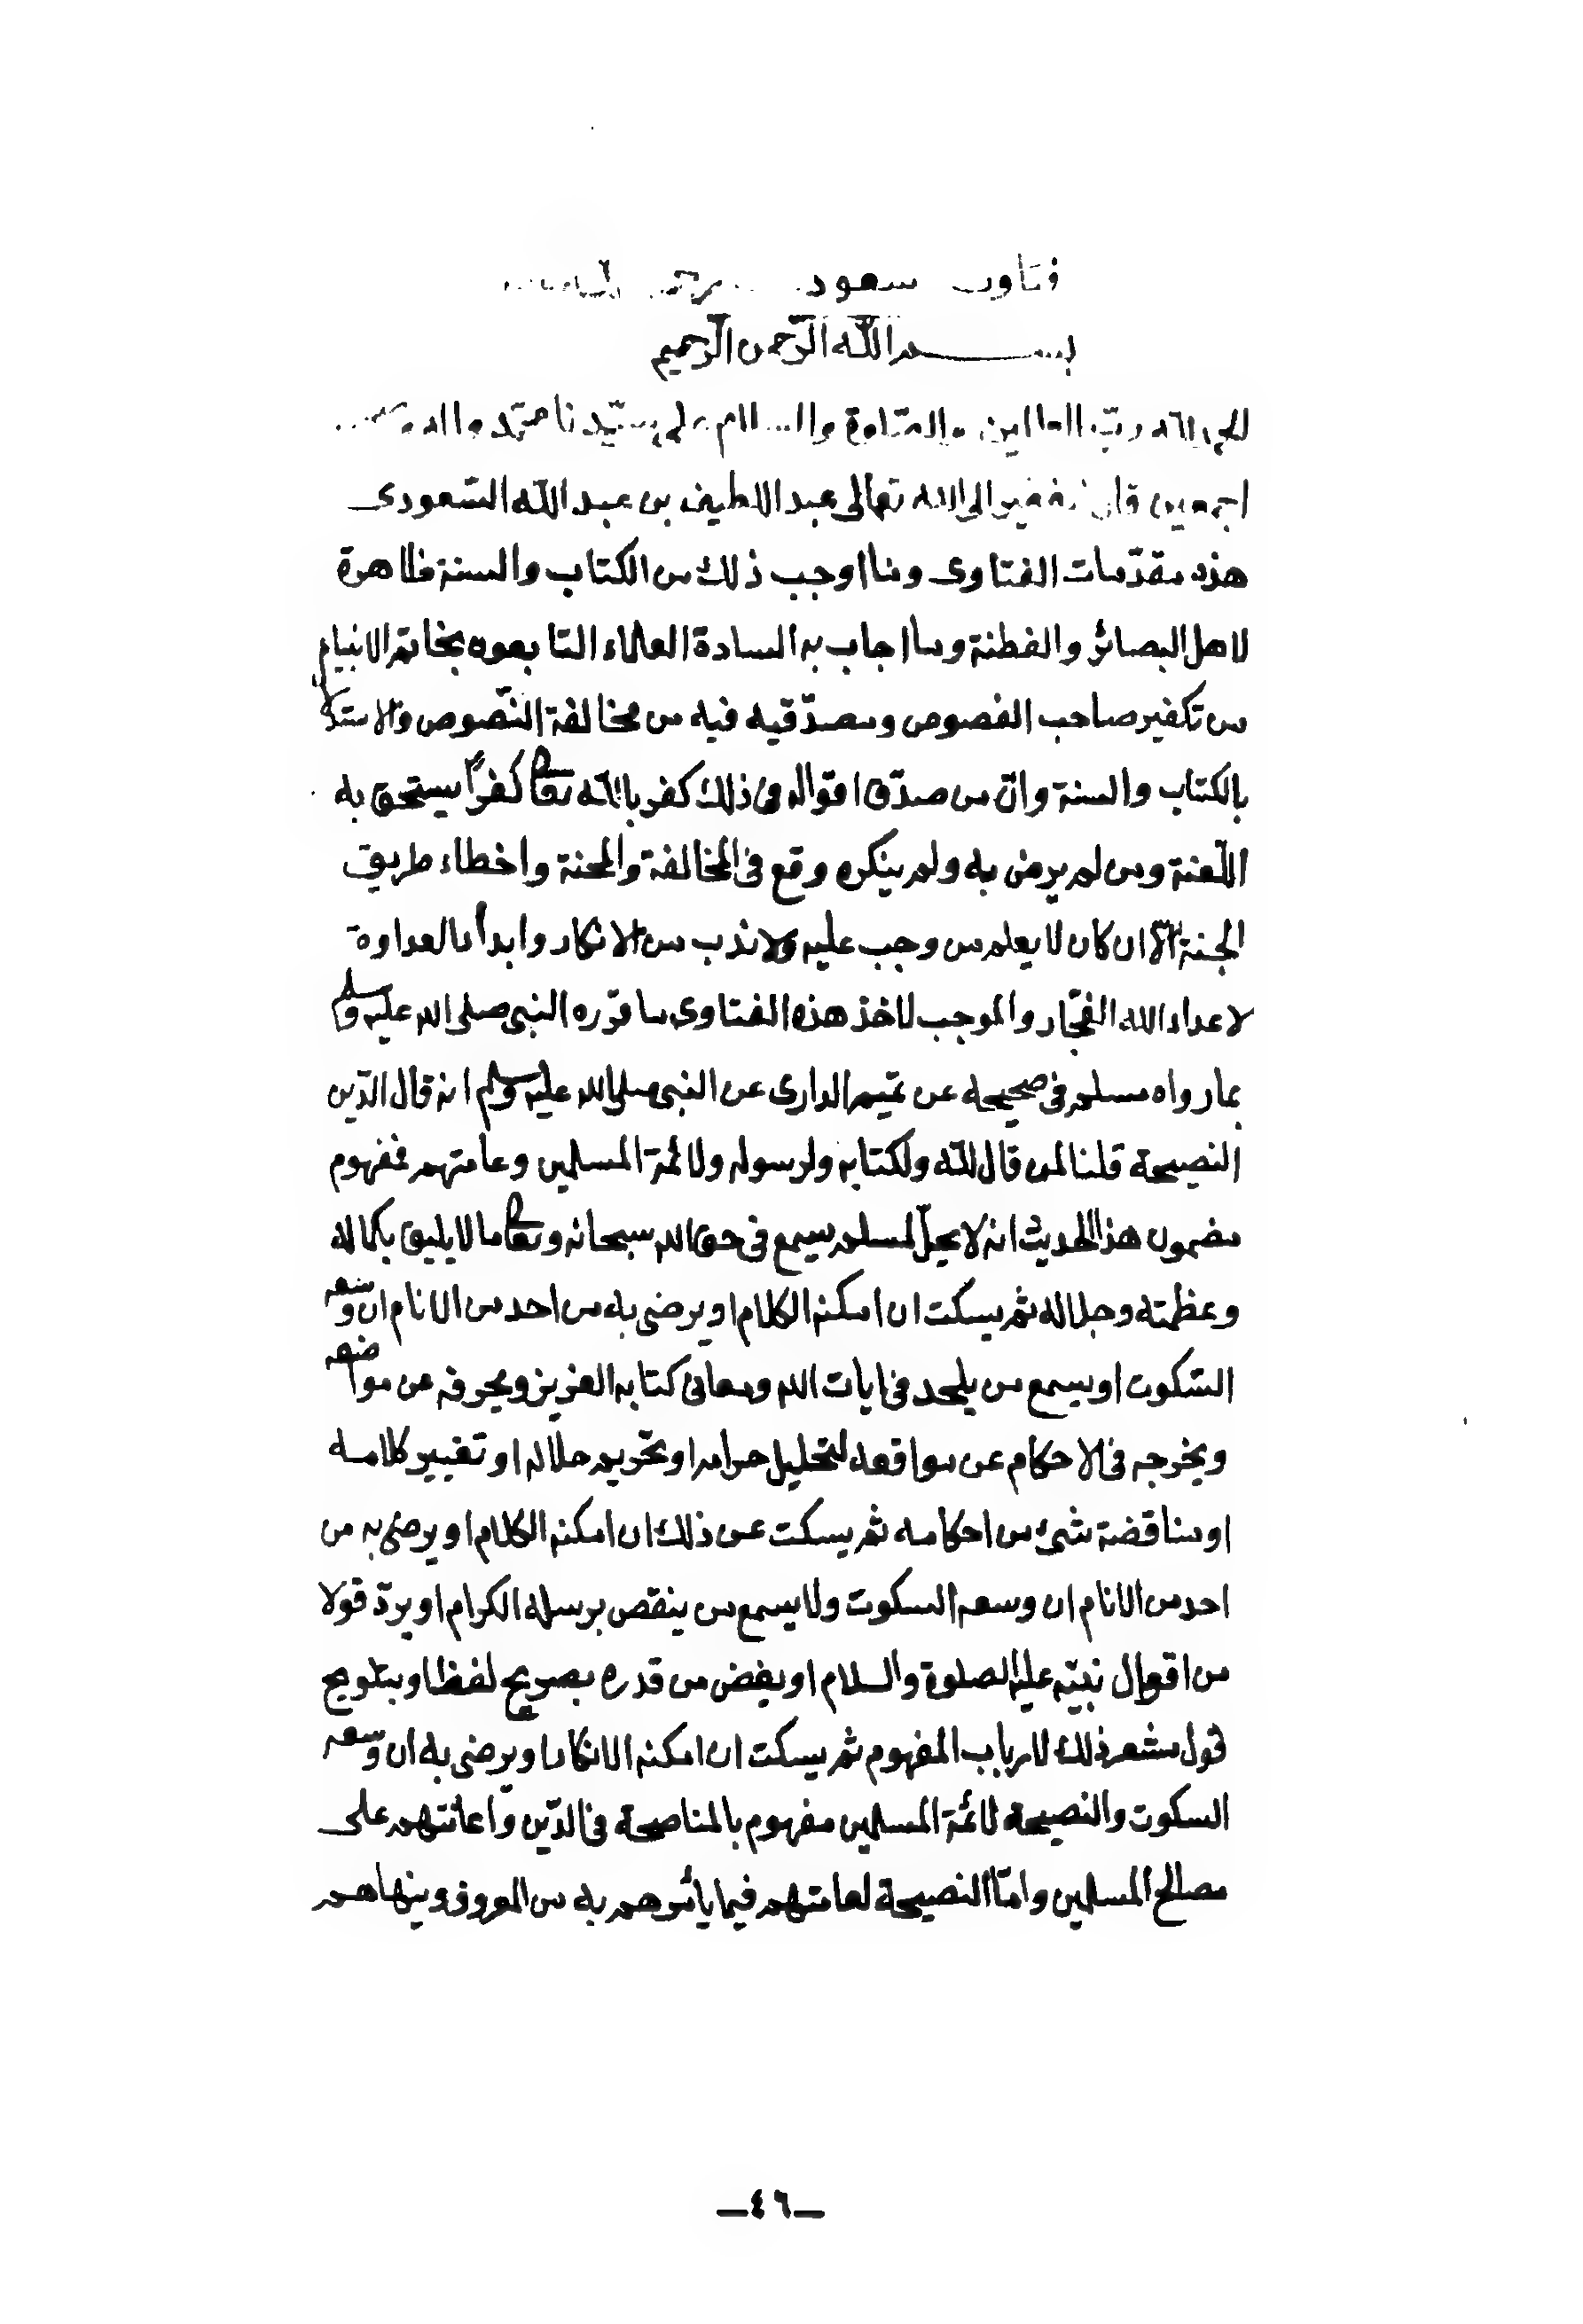 فتاوى سعودى
بسم الله الرّحمن الرّحيم
الحمد لله ربّ العالمين والصّلوة والسلام على سيّدنا محمّد واله
اجمعين قال الفقير الى الله تعالى عبد اللطيف بن عبد الله السّعودى
هذه مقدّمات الفتاوى وما اوجب ذلك من الكتاب والسنة ظاهرة
لاهل البصائر والفطنة وما اجاب به السادة العلماء التابعون بخاتم الانبياء
من تكفير صاحب الفصوص ومصدّقيه فيه من مخالفة النّصوص والاستدلا
بالكتاب والسنة وانّ من صدّق اقواله فى ذلك كفر بالله تعالى كفراً يستحق به
اللّعنة ومن لم يرض به ولم ينكره وقع فى المخالفة والمحنة واخطاء طريق
الجنة الا ان كان لا يعلم من وجب عليه ولا ندب من الانكار وابدأ بالعداوة
لاعداء الله الفجّار والموجب لاخذ هذه الفتاوى ما قرّره النبى صلى الله عليه وسلم
بما رواه مسلم فى صحيحه عن تميم الدارى عن النبى صلى الله عليه وسلم انه قال الدّين
النصيحة قلنا لمن قال لله ولكتابه ولرسوله ولائمة المسلمين وعامتهم فمفهوم
مضمون هذا الحديث انه لا يحلّ لمسلم يسمع فى حق الله سبحانه وتعالى ما لا يليق بكماله
وعظمته وجلاله ثم يسكت ان امكنه الكلام او يرضى به من احد من الانام ان وسعه
السّكوت او يسمع من يلحد فى ايات الله ومعانى كتابه العزيز ويحرفه عن مواضعه
ويخرجه فى الاحكام عن مواقعه لتحليل حرامه او تحّريم حلاله او تغيير كلامه
او مناقضة شئ من احكامه ثم يسكت عن ذلك ان امكنه الكلام او يرضى به من
احد من الانام ان وسعه السكوت ولا يسمع من ينقص برسله الكرام او يردّ قولا
من اقوال نبيّه عليه الصلوة والسلام او يغض من قدره بصريح لفظ او بتلويح
قول مشعر ذلك لارباب المفهوم ثم يسكت ان امكنه الانكار او يرضى به ان وسعه
السكوت والنصيحة لائمة المسلمين مفهوم بالمناصحة فى الدّين واعانتهم على
مصالح المسلمين وامّا النصيحة لعامتهم فيما يأمرهم به من المعروف وينهاهم
—٤٦—